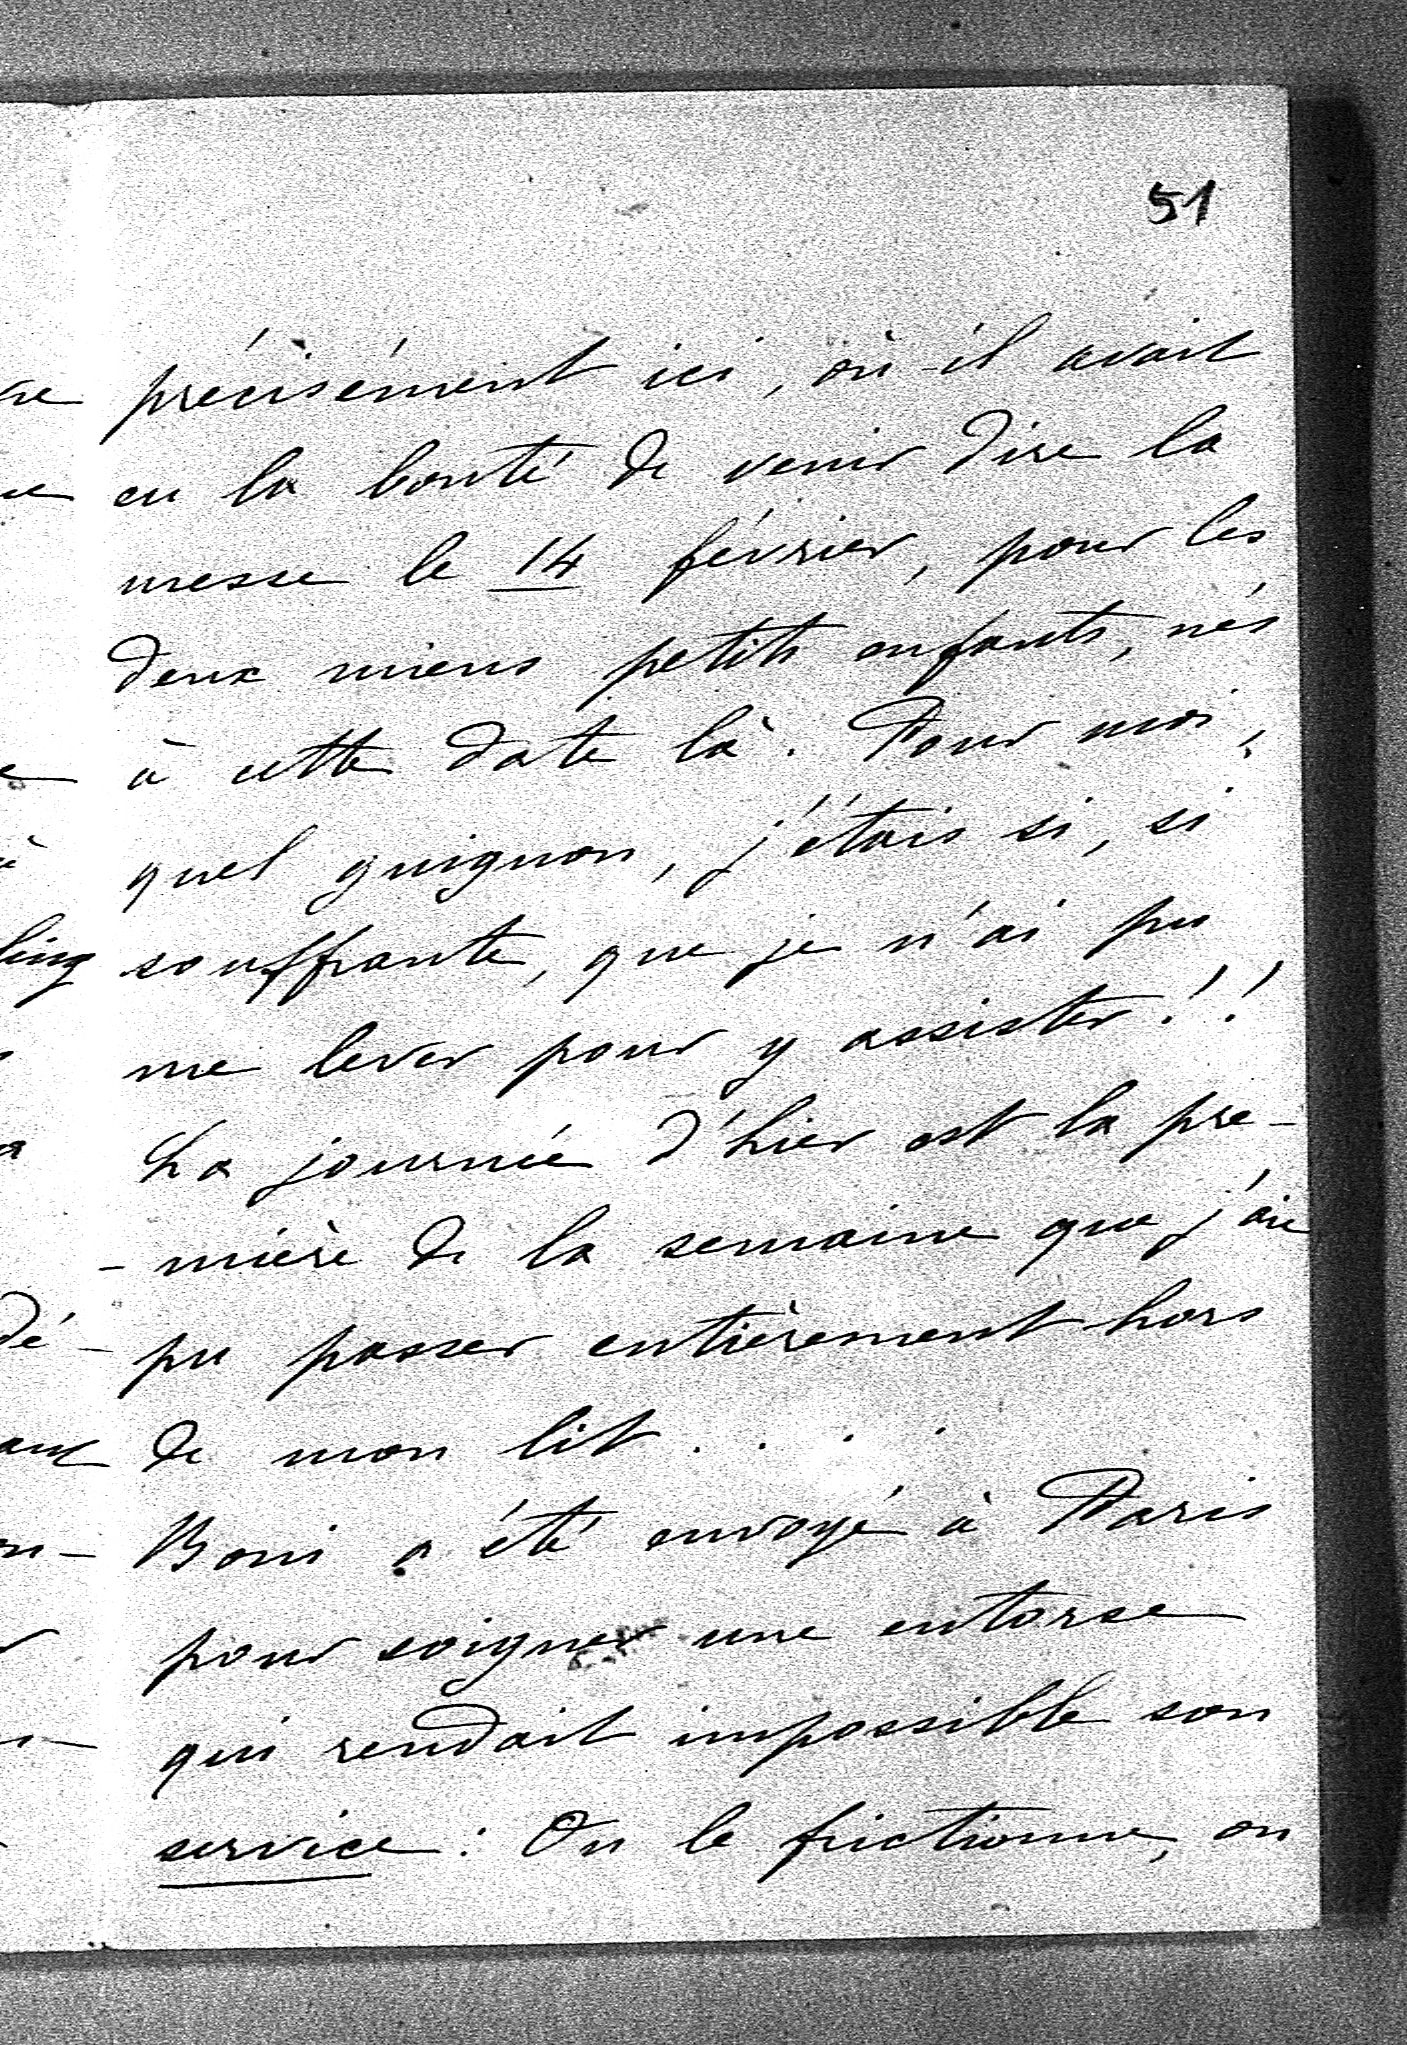 51
précisément ici, où il avait
eu la bonté de venir dire la
messe le 14 février, pour les
deux miens petits enfants, nés
à cette date là. Pour moi,
quel guignon, j'étais si, si
souffrante, que je n'ai pu
me lever pour y assister!!
La journée d'hier est la pre-
-mière de la semaine que j'aie
pu passer entièrement hors
de mon lit . . . .
Boni a été envoyé à Paris
pour soigner une entorse
qui rendait impossible son
service : On le frictionne, on